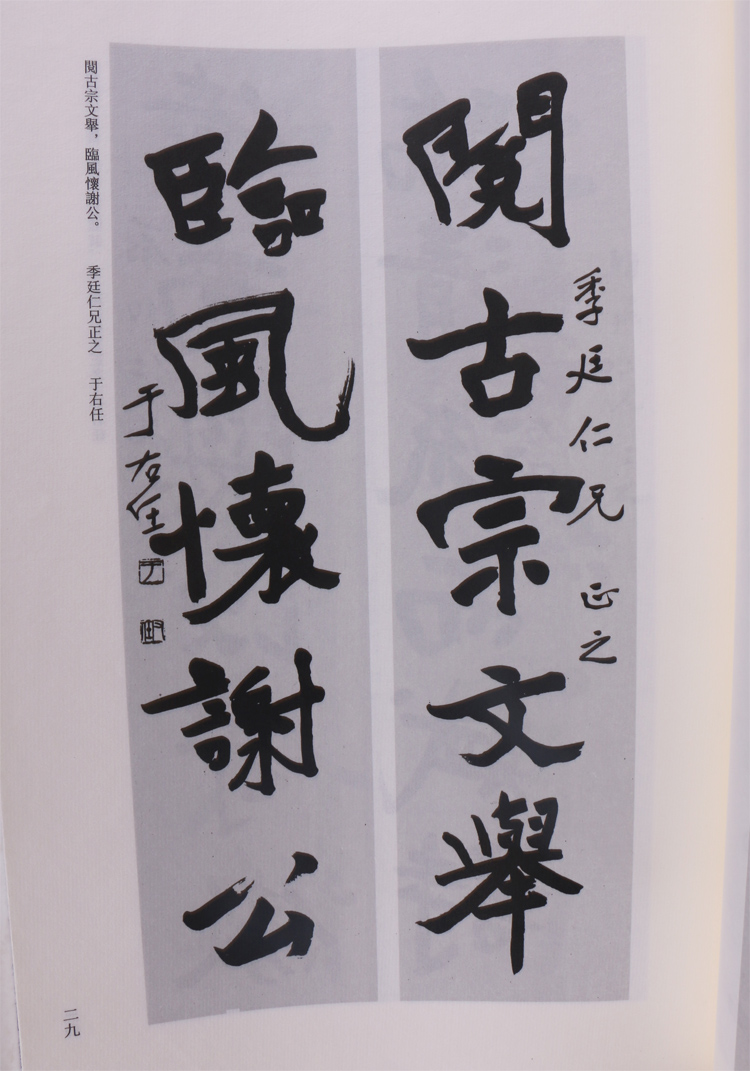 閱古宗文舉
季廷仁兄 正之
臨風懷謝公
于右任
閱古宗文舉，臨風懷謝公。 季廷仁兄正之 于右任
二九